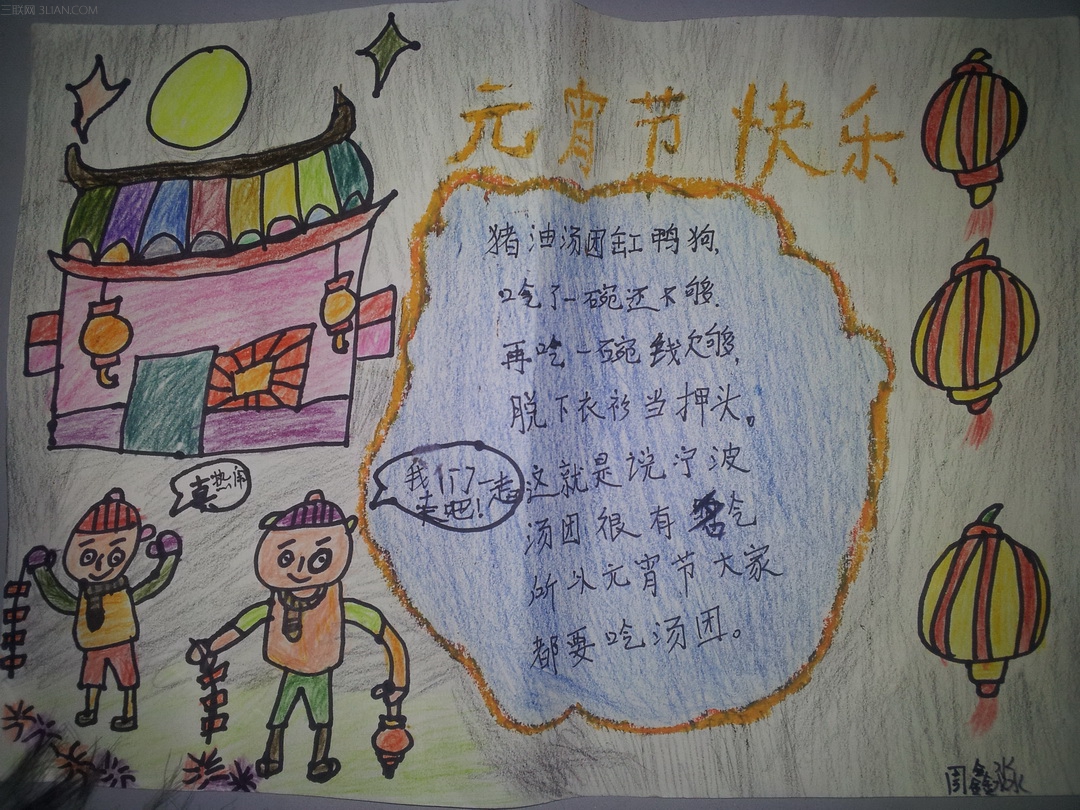 三联网 3LIAN.COM
元宵节快乐
猪油汤团缸鸭狗,
吃了一碗还不够.
再吃一碗钱欠够,
脱下衣衫当押头。
这就是说宁波
汤团很有名气
所以元宵节大家
都要吃汤团。
我们一起
去吧!
真热闹
周鑫